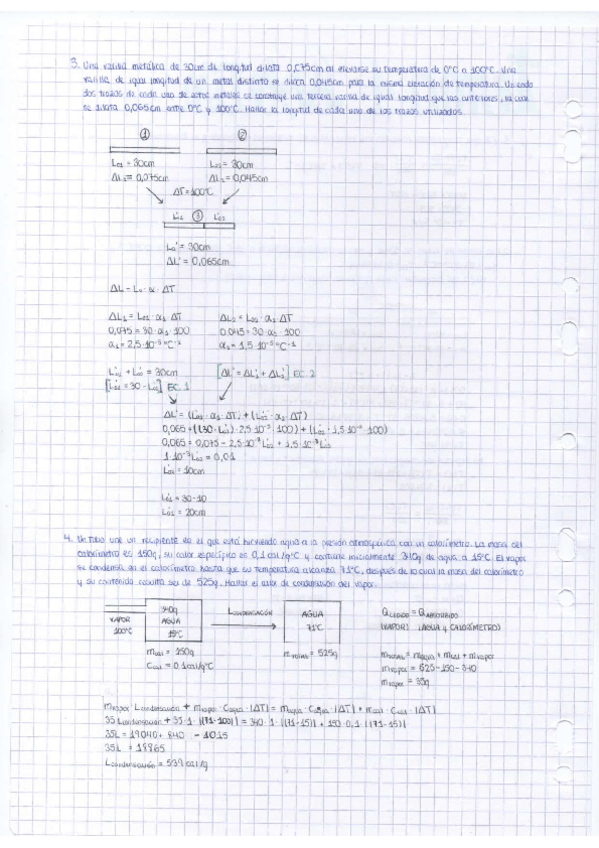 3. Una varilla metálica de 30cm de longitud dilata 0,075cm al elevarse su temperatura de 0ºC a 100ºC. Una
varilla de igual longitud de un metal distinto se dilata 0,045cm para la misma elevación de temperatura. Uniendo
dos trozos de cada uno de estos metales se construye una tercera varilla de igual longitud que las anteriores, la cual
se dilata 0,065cm entre 0ºC y 100ºC. Hallar la longitud de cada uno de los trozos utilizados.
① ②
L₀₁ = 30cm L₀₂ = 30cm
ΔL₁ = 0,075cm ΔL₂ = 0,045cm
ΔT = 100ºC
L'₀₁ ③ L'₀₂
L₀' = 30cm
ΔL' = 0,065cm
ΔL = L₀ · α · ΔT
ΔL₁ = L₀₁ · α₁ · ΔT ΔL₂ = L₀₂ · α₂ · ΔT
0,075 = 30 · α₁ · 100 0,045 = 30 · α₂ · 100
α₁ = 2,5·10⁻⁵ ºC⁻¹ α₂ = 1,5·10⁻⁵ ºC⁻¹
L'₀₁ + L'₀₂ = 30cm [ΔL' = ΔL'₁ + ΔL'₂] EC. 2
[L'₀₁ = 30 - L'₀₂] EC. 1
ΔL' = (L'₀₁ · α₁ · ΔT) + (L'₀₂ · α₂ · ΔT)
0,065 = ((30 - L'₀₂) · 2,5·10⁻⁵ · 100) + (L'₀₂ · 1,5·10⁻⁵ · 100)
0,065 = 0,075 - 2,5·10⁻³ L'₀₂ + 1,5·10⁻³ L'₀₂
1·10⁻³ L'₀₂ = 0,01
L'₀₂ = 10cm
L'₀₁ = 30-10
L'₀₁ = 20cm
4. Un tubo une un recipiente en el que está hirviendo agua a la presión atmosférica con un calorímetro. La masa del
calorímetro es 150g, su calor específico es 0,1 cal/gºC y contiene inicialmente 340g de agua a 15ºC. El vapor
se condensa en el calorímetro hasta que su temperatura alcanza 71ºC, después de lo cual la masa del calorímetro
y su contenido resulta ser de 525g. Hallar el calor de condensación del vapor.
VAPOR 100ºC
340g AGUA 15ºC
LCONDENSACIÓN
AGUA 71ºC
QCEDIDO = QABSORBIDO
(VAPOR) (AGUA y CALORÍMETRO)
mcal = 150g
Ccal = 0.1cal/gºC
mTOTAL = 525g
mTOTAL = magua + mcal + mvapor
mvapor = 525-150-340
mvapor = 35g
mvapor · Lcondensación + mvapor · Cagua · |ΔT| = magua · Cagua · |ΔT| + mcal · Ccal · |ΔT|
35 Lcondensación + 35·1·|(71-100)| = 340·1·|(71-15)| + 150·0,1·|(71-15)|
35L = 19040 + 840 - 1015
35L = 18865
Lcondensación = 539 cal/g